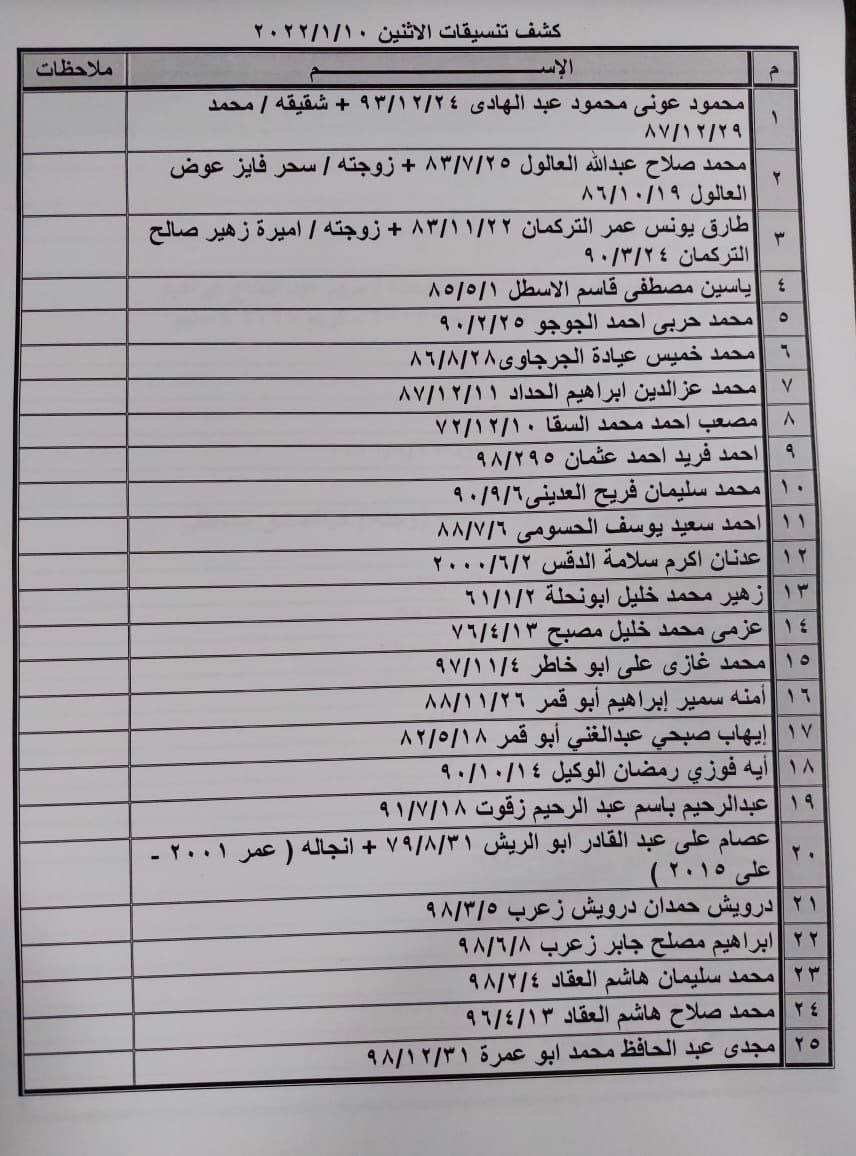 كشف تنسيقات الاثنين ٢٠٢٢/١/١٠
م الإســـــــــم ملاحظات
١ محمود عونى محمود عبد الهادى ٩٣/١٢/٢٤ + شقيقه / محمد
٨٧/١٢/٢٩
٢ محمد صلاح عبدالله العالول ٨٣/٧/٢٥ + زوجته / سحر فايز عوض
العالول ٨٦/١٠/١٩
٣ طارق يونس عمر التركمان ٨٣/١١/٢٢ + زوجته / اميرة زهير صالح
التركمان ٩٠/٣/٢٤
٤ ياسين مصطفى قاسم الاسطل ٨٥/٥/١
٥ محمد حربى احمد الجوجو ٩٠/٢/٢٥
٦ محمد خميس عيادة الجرجاوى٨٦/٨/٢٨
٧ محمد عزالدين ابراهيم الحداد ٨٧/١٢/١١
٨ مصعب احمد محمد السقا ٧٢/١٢/١٠
٩ احمد فريد احمد عثمان ٩٨/٢٩٥
١٠ محمد سليمان فريح العدينى٩٠/٩/٦
١١ احمد سعيد يوسف الحسومى ٨٨/٧/٦
١٢ عدنان اكرم سلامة الدقس ٢٠٠٠/٦/٢
١٣ زهير محمد خليل ابونحلة ٦١/١/٢
١٤ عزمى محمد خليل مصبح ٧٦/٤/١٣
١٥ محمد غازى على ابو خاطر ٩٧/١١/٤
١٦ أمنه سمير إبراهيم أبو قمر ٨٨/١١/٢٦
١٧ إيهاب صبحي عبدالغني أبو قمر ٨٢/٥/١٨
١٨ أيه فوزي رمضان الوكيل ٩٠/١٠/١٤
١٩ عبدالرحيم باسم عبد الرحيم زقوت ٩١/٧/١٨
٢٠ عصام على عبد القادر ابو الريش ٧٩/٨/٣١ + انجاله ( عمر ٢٠٠١ -
على ٢٠١٥ )
٢١ درويش حمدان درويش زعرب ٩٨/٣/٥
٢٢ ابراهيم مصلح جابر زعرب ٩٨/٦/٨
٢٣ محمد سليمان هاشم العقاد ٩٨/٢/٤
٢٤ محمد صلاح هاشم العقاد ٩٦/٤/١٣
٢٥ مجدى عبد الحافظ محمد ابو عمرة ٩٨/١٢/٣١